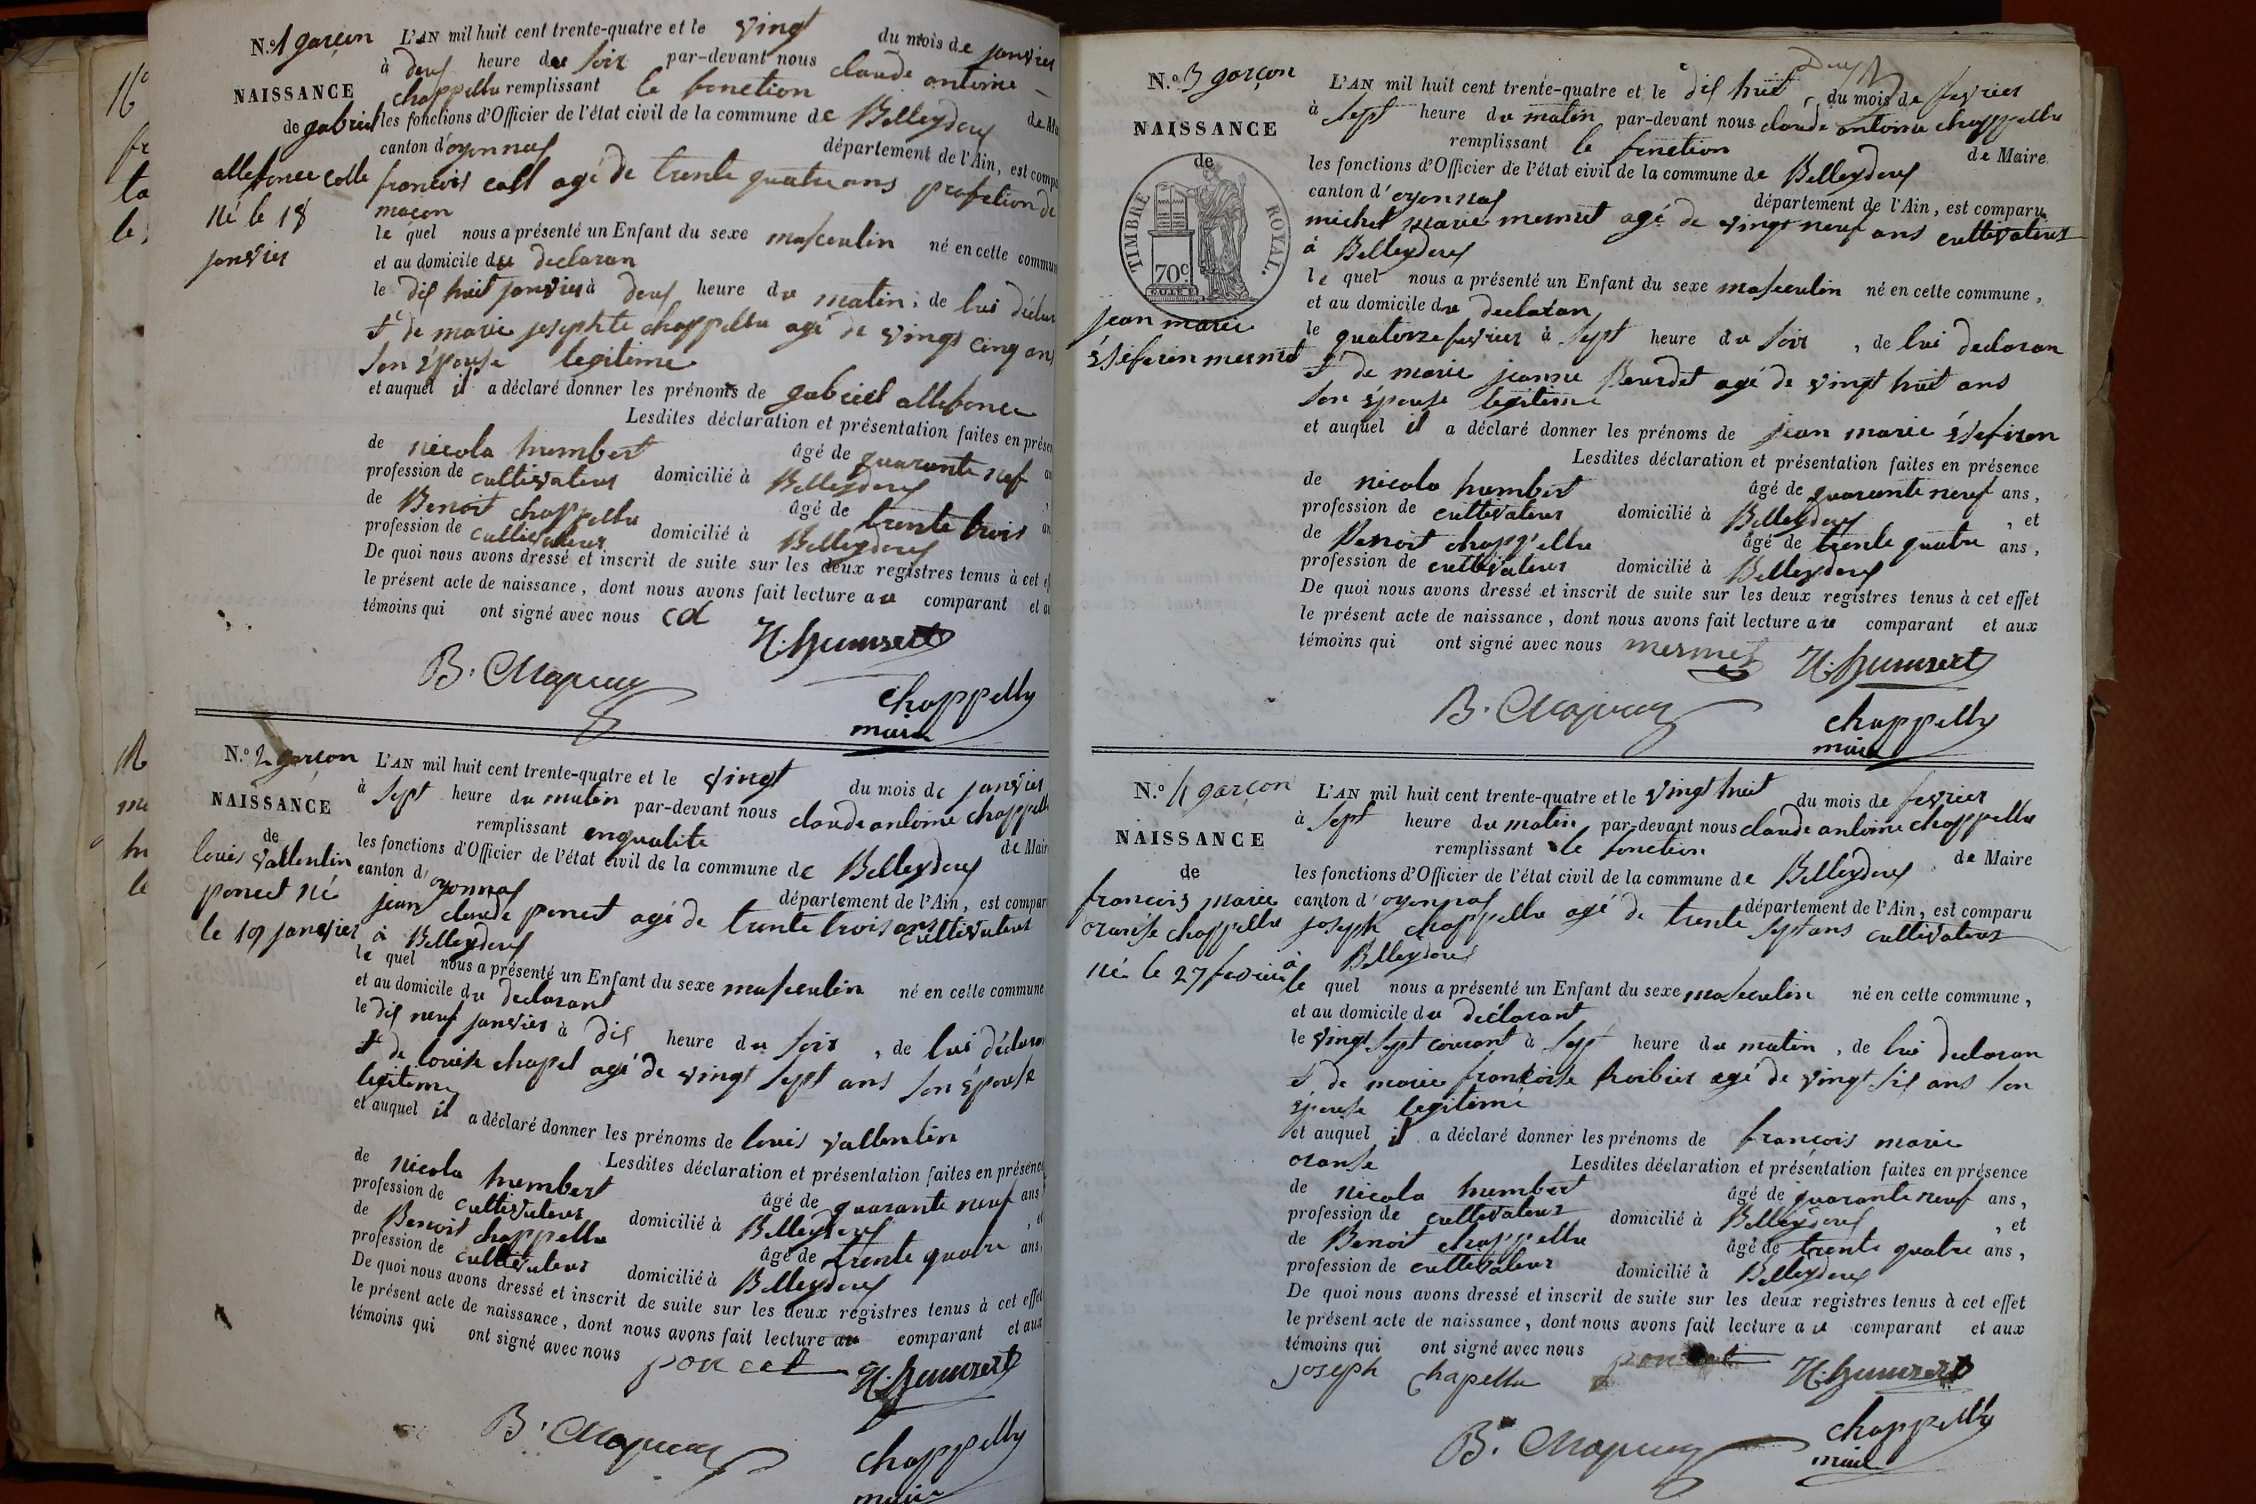 N.º 1 garçon
NAISSANCE
de gabriel
allefonce colle
né le 18
janvier
L'AN mil huit cent trente-quatre et le vingt du mois de janvier
à deux heure du soir par-devant nous claude antoine
chappellu remplissant le fonction
les fonctions d'Officier de l'état civil de la commune de Belleydoux de Ma
canton d'oyonnax département de l'Ain, est compa
francois coll agé de trente quatre ans profession de
maçon
le quel nous a présenté un Enfant du sexe masculin né en cette commun
et au domicile du declaran
le dix huit janvier à deux heure du matin, de lui déclar
et de marie josephte chappellu agé de vingt cinq ans
son épouse legitime
et auquel il a déclaré donner les prénoms de gabriel allefonce
Lesdites déclaration et présentation faites en présen
de nicola humbert âgé de quarante nef an
profession de cultivateur domicilié à Belleydoux
de Benoit chappellu âgé de trente trois an
profession de cultivateur domicilié à Belleydoux
De quoi nous avons dressé et inscrit de suite sur les deux registres tenus à cet ef
le présent acte de naissance, dont nous avons fait lecture au comparant et au
témoins qui ont signé avec nous
N. humbert
B. Chapuy
chappelly
maire
N.º 2 garçon
NAISSANCE
de
louis vallentin
poncet né
le 19 janvier
L'AN mil huit cent trente-quatre et le vingt du mois de janvier
à sept heure du matin par-devant nous claude antoine chappell
remplissant en qualite de Mair
les fonctions d'Officier de l'état civil de la commune de Belleydoux
canton d'oyonnax département de l'Ain, est compar
jean claude poncet agé de trente trois ans cultivateur
à Belleydoux
le quel nous a présenté un Enfant du sexe masculin né en cette commune
et au domicile du declarant
le dix neuf janvier à dix heure du soir, de lui déclaran
et de louise chapel agé de vingt sept ans son épouse
legitime
et auquel il a déclaré donner les prénoms de louis vallentin
Lesdites déclaration et présentation faites en présence
de nicola humbert âgé de quarante neuf ans
profession de cultivateur domicilié à Belleydoux, et
de Benoit chappellu âgé de trente quatre ans,
profession de cultivateur domicilié à Belleydoux
De quoi nous avons dressé et inscrit de suite sur les deux registres tenus à cet effet
le présent acte de naissance, dont nous avons fait lecture au comparant et aux
témoins qui ont signé avec nous
poncet N. humbert
B. Chapuy
chappelly
maire
N.º 3 garçon
NAISSANCE
de
TIMBRE ROYAL.
70c
jean marie
Éseferin mermet
L'AN mil huit cent trente-quatre et le dix huit du mois de fevrier
à sept heure du matin par-devant nous claude antoine chappellu
remplissant le fonction de Maire
les fonctions d'Officier de l'état civil de la commune de Belleydoux
canton d'oyonnax département de l'Ain, est comparu
michel marie mermet agé de vingt neuf ans cultivateur
à Belleydoux
le quel nous a présenté un Enfant du sexe masculin né en cette commune,
et au domicile du declaran
le quatorze fevrier à sept heure du soir, de lui declaran
et de marie jeanne Bourdet agé de vingt huit ans
son épouse legitime
et auquel il a déclaré donner les prénoms de jean marie Ésefiren
Lesdites déclaration et présentation faites en présence
de nicola humbert âgé de quarante neuf ans,
profession de cultivateur domicilié à Belleydoux, et
de Benoit chappellu âgé de trente quatre ans,
profession de cultivateur domicilié à Belleydoux
De quoi nous avons dressé et inscrit de suite sur les deux registres tenus à cet effet
le présent acte de naissance, dont nous avons fait lecture au comparant et aux
témoins qui ont signé avec nous mermet N. humbert
B. Chapuy
chappelly
maire
N.º 4 garçon
NAISSANCE
de
francois marie
oranse chappellu
né le 27 fevrier
L'AN mil huit cent trente-quatre et le vingt huit du mois de fevrier
à sept heure du matin par-devant nous claude antoine chappellu
remplissant le fonction de Maire
les fonctions d'Officier de l'état civil de la commune de Belleydoux
canton d'oyonnax département de l'Ain, est comparu
joseph chappellu agé de trente sept ans cultivateur
à Belleydoux
le quel nous a présenté un Enfant du sexe masculin né en cette commune,
et au domicile du declarant
le vingt sept courant à sept heure du matin, de lui declaran
et de marie francoise froibier agé de vingt six ans son
épouse legitime
et auquel il a déclaré donner les prénoms de françois marie
oranse Lesdites déclaration et présentation faites en présence
de nicola humbert âgé de quarante neuf ans,
profession de cultivateur domicilié à Belleydoux, et
de Benoit chappellu âgé de trente quatre ans,
profession de cultivateur domicilié à Belleydoux
De quoi nous avons dressé et inscrit de suite sur les deux registres tenus à cet effet
le présent acte de naissance, dont nous avons fait lecture au comparant et aux
témoins qui ont signé avec nous
joseph chapellu N. humbert
B. Chapuy
chappelly
maire